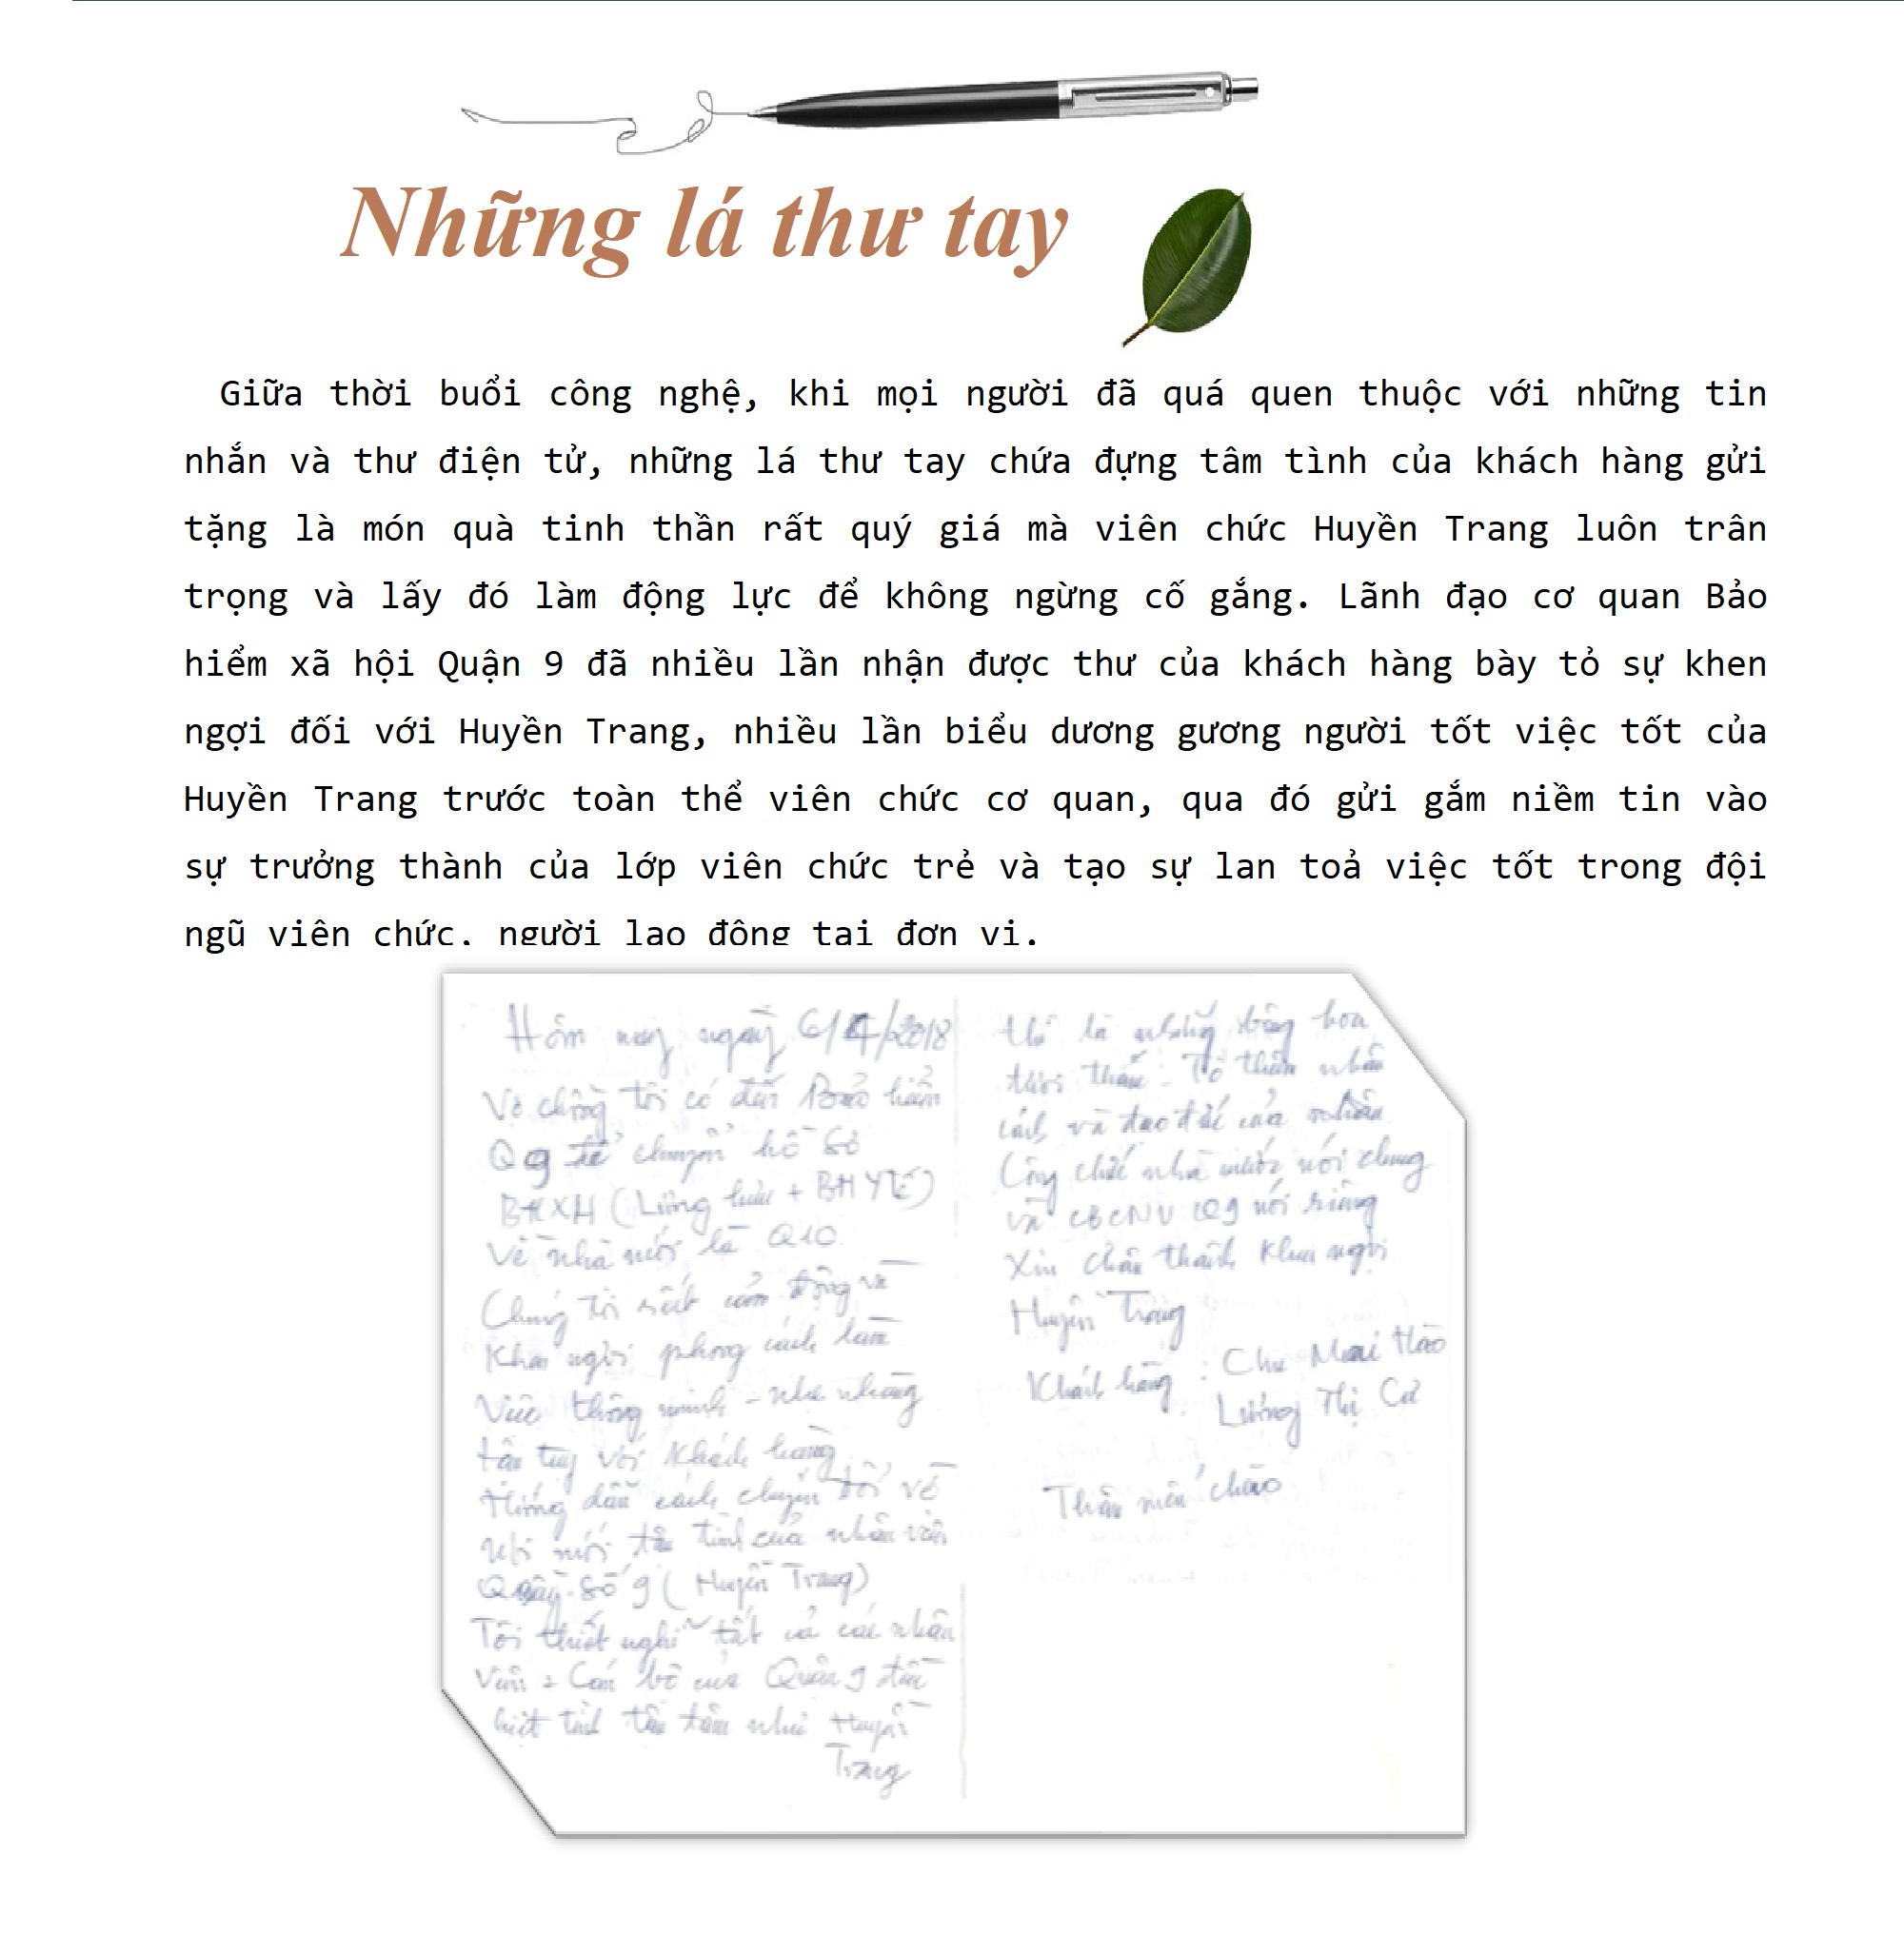 Những lá thư tay
Giữa thời buổi công nghệ, khi mọi người đã quá quen thuộc với những tin
nhắn và thư điện tử, những lá thư tay chứa đựng tâm tình của khách hàng gửi
tặng là món quà tinh thần rất quý giá mà viên chức Huyền Trang luôn trân
trọng và lấy đó làm động lực để không ngừng cố gắng. Lãnh đạo cơ quan Bảo
hiểm xã hội Quận 9 đã nhiều lần nhận được thư của khách hàng bày tỏ sự khen
ngợi đối với Huyền Trang, nhiều lần biểu dương gương người tốt việc tốt của
Huyền Trang trước toàn thể viên chức cơ quan, qua đó gửi gắm niềm tin vào
sự trưởng thành của lớp viên chức trẻ và tạo sự lan toả việc tốt trong đội
ngũ viên chức, người lao động tại đơn vị.
Hôm nay ngày 6/4/2018
Vợ chồng tôi có đến Bảo hiểm
Q9 để chuyển hồ sơ
BHXH (Lương hưu + BH Y tế)
Về nhà mới là Q10.
Chúng tôi rất cảm động và
Khen ngợi phong cách làm
Việc thông minh - nhẹ nhàng
tận tụy với Khách hàng
Hướng dẫn cách chuyển đổi về
nơi mới tận tình của nhân viên
Quầy số 9 (Huyền Trang)
Tôi thiết nghĩ tất cả các nhân
Viên + Cán bộ của Quận 9 đều
nhiệt tình tận tâm như Huyền
Trang
thì là những bông hoa
tươi thắm - Tô thêm nhân
cách và đạo đức của nhân
Công chức nhà nước nói chung
và CBCNV Q9 nói riêng
Xin chân thành Khen ngợi
Huyền Trang
Khách hàng : Chu Mai Hào
Lương Thị Cư
Thân mến chào